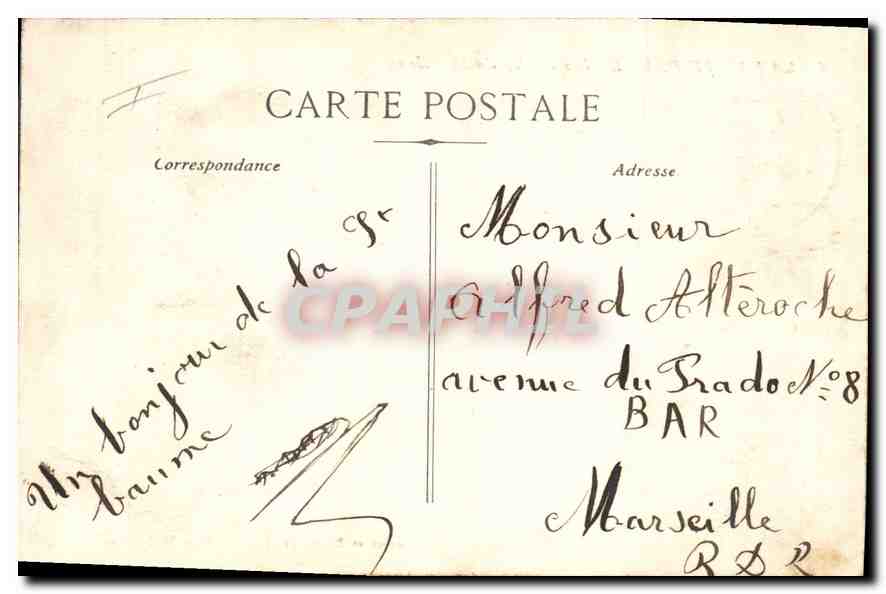 CARTE POSTALE
Correspondance
Adresse
Un bonjour de la St
baume
Monsieur
Alfred Altéroche
avenue du Prado No 8
BAR
Marseille
R D R
CPAPHIL